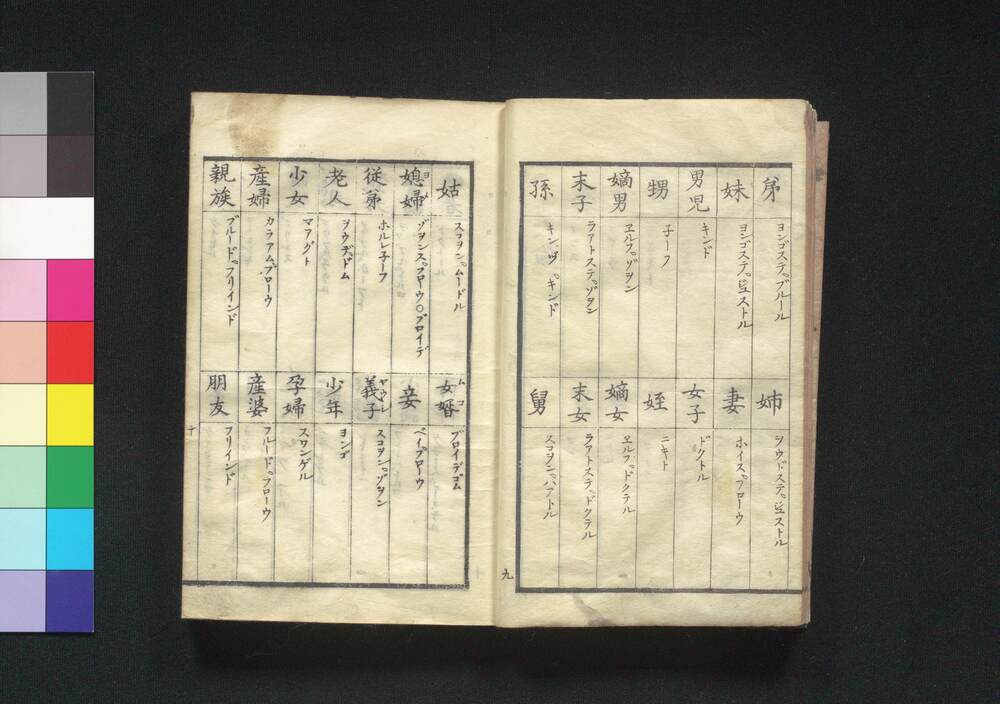 弟
ヨンゴステ。ブルール
妹
ヨンゴステ。ヅストル
男児
キンド
甥
子ーフ
嫡男
ヱルフ。ゾヲン
末子
ラアトステ。ゾヲン
孫
キンヅ。キンド
姉
ヲウドステ。ヅストル
妻
ホイス。フローウ
女子
ドクトル
姪
ニキト
嫡女
ヱルフ。ドクテル
末女
ラアトステ。ドクテル
舅
スコヲン。ハアトル
九
姑
スコヲン。ムードル
媳婦
ヨメ
ゾヲンス。フローウ〇ブロイデ
従弟
ホルレ子ーフ
老人
ヲウヂ。ドム
少女
マアグト
産婦
カラアム。ブローウ
親族
ブルード。フリインド
女婿
ムコ
ブロイデゴム
妾
ベイ。フローウ
義子
スコヲン。ゾヲン
少年
ヨンゴ
孕婦
スワンゲル
産婆
フルード。フローウ
朋友
フリインド
十